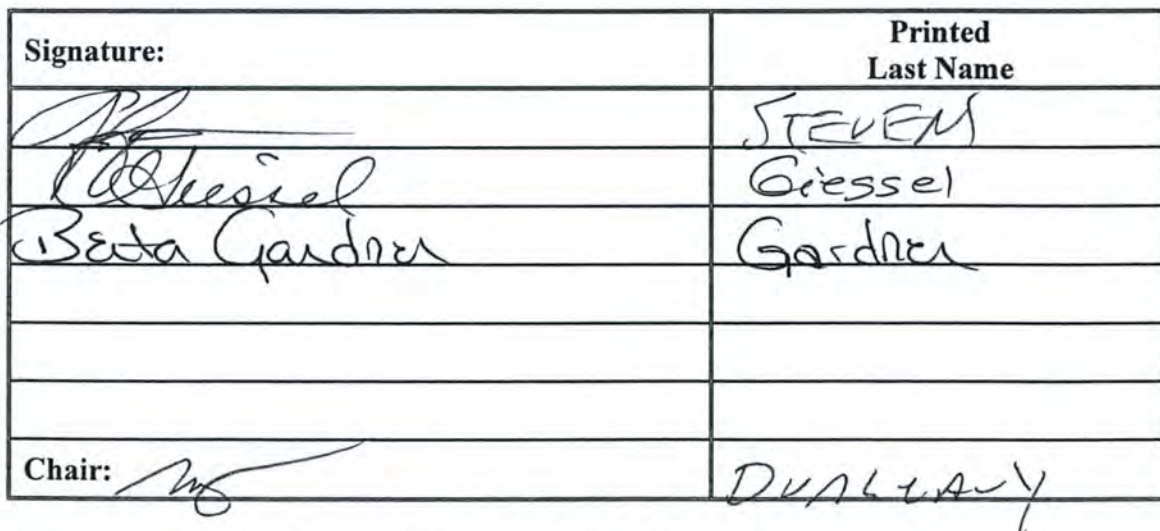 Signature: Printed
Last Name
STEVENS
Giessel
Berta Gardner Gardner
Chair: DUNLEAVY